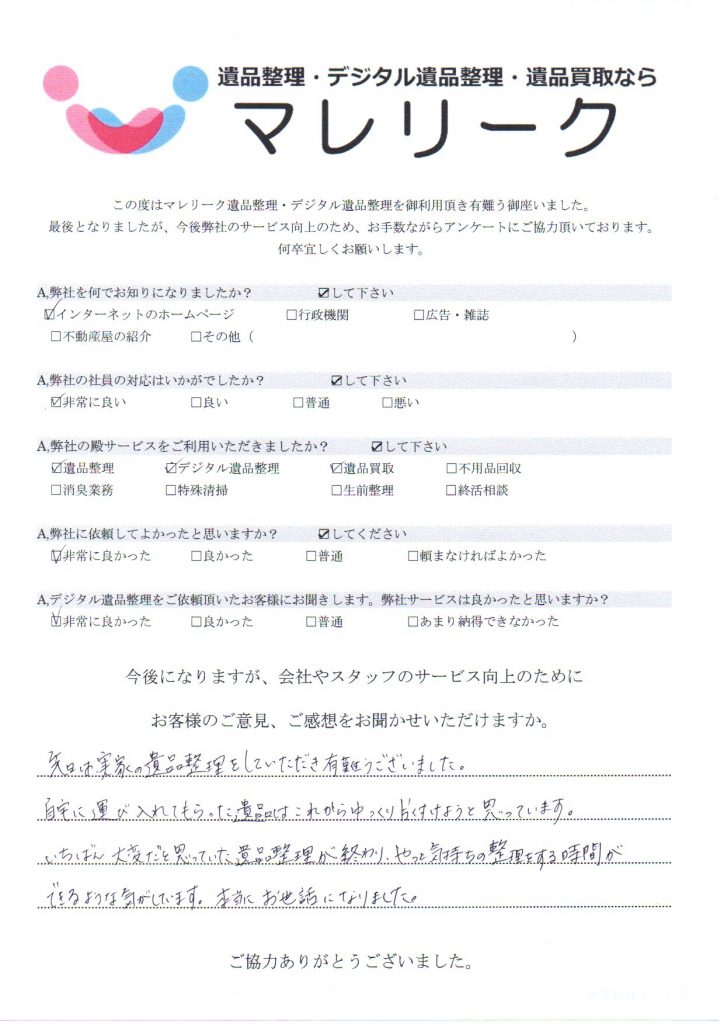 遺品整理・デジタル遺品整理・遺品買取なら
マレリーク
この度はマレリーク遺品整理・デジタル遺品整理を御利用頂き有難う御座いました。
最後となりましたが、今後弊社のサービス向上のため、お手数ながらアンケートにご協力頂いております。
何卒宜しくお願いします。
A,弊社を何でお知りになりましたか？ ☑して下さい
☑インターネットのホームページ □行政機関 □広告・雑誌
□不動産屋の紹介 □その他（ ）
A,弊社の社員の対応はいかがでしたか？ ☑して下さい
☑非常に良い □良い □普通 □悪い
A,弊社の殿サービスをご利用いただきましたか？ ☑して下さい
☑遺品整理 ☑デジタル遺品整理 ☑遺品買取 □不用品回収
□消臭業務 □特殊清掃 □生前整理 □終活相談
A,弊社に依頼してよかったと思いますか？ ☑してください
☑非常に良かった □良かった □普通 □頼まなければよかった
A,デジタル遺品整理をご依頼頂いたお客様にお聞きします。弊社サービスは良かったと思いますか？
☑非常に良かった □良かった □普通 □あまり納得できなかった
今後になりますが、会社やスタッフのサービス向上のために
お客様のご意見、ご感想をお聞かせいただけますか。
先日は実家の遺品整理をしていただき有難うございました。
自宅に運び入れてもらった遺品はこれからゆっくり片付けようと思っています。
いちばん大変だと思っていた遺品整理が終わり、やっと気持ちの整理をする時間が
できるような気がしています。本当にお世話になりました。
ご協力ありがとうございました。